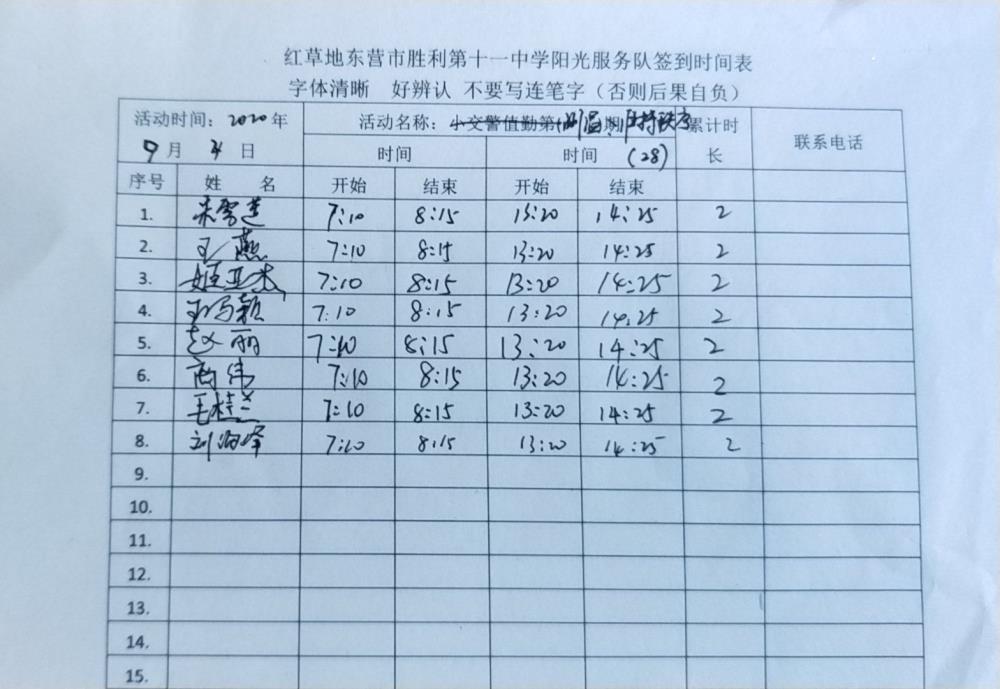 红草地东营市胜利第十一中学阳光服务队签到时间表
字体清晰 好辨认 不要写连笔字（否则后果自负）
活动时间：2020年 活动名称：小交警值勤第( 测温、维持秩序 累计时长 联系电话
9月 4日 时间 时间 (28)
序号 姓 名 开始 结束 开始 结束
1. 朱雪莲 7:10 8:15 13:20 14:25 2
2. 王燕 7:10 8:15 13:20 14:25 2
3. 姬亚杰 7:10 8:15 13:20 14:25 2
4. 颖 7:10 8:15 13:20 14:25 2
5. 赵丽 7:10 8:15 13:20 14:25 2
6. 商伟 7:10 8:15 13:20 14:25 2
7. 毛桂兰 7:10 8:15 13:20 14:25 2
8. 刘海峰 7:10 8:15 13:20 14:25 2
9.
10.
11.
12.
13.
14.
15.